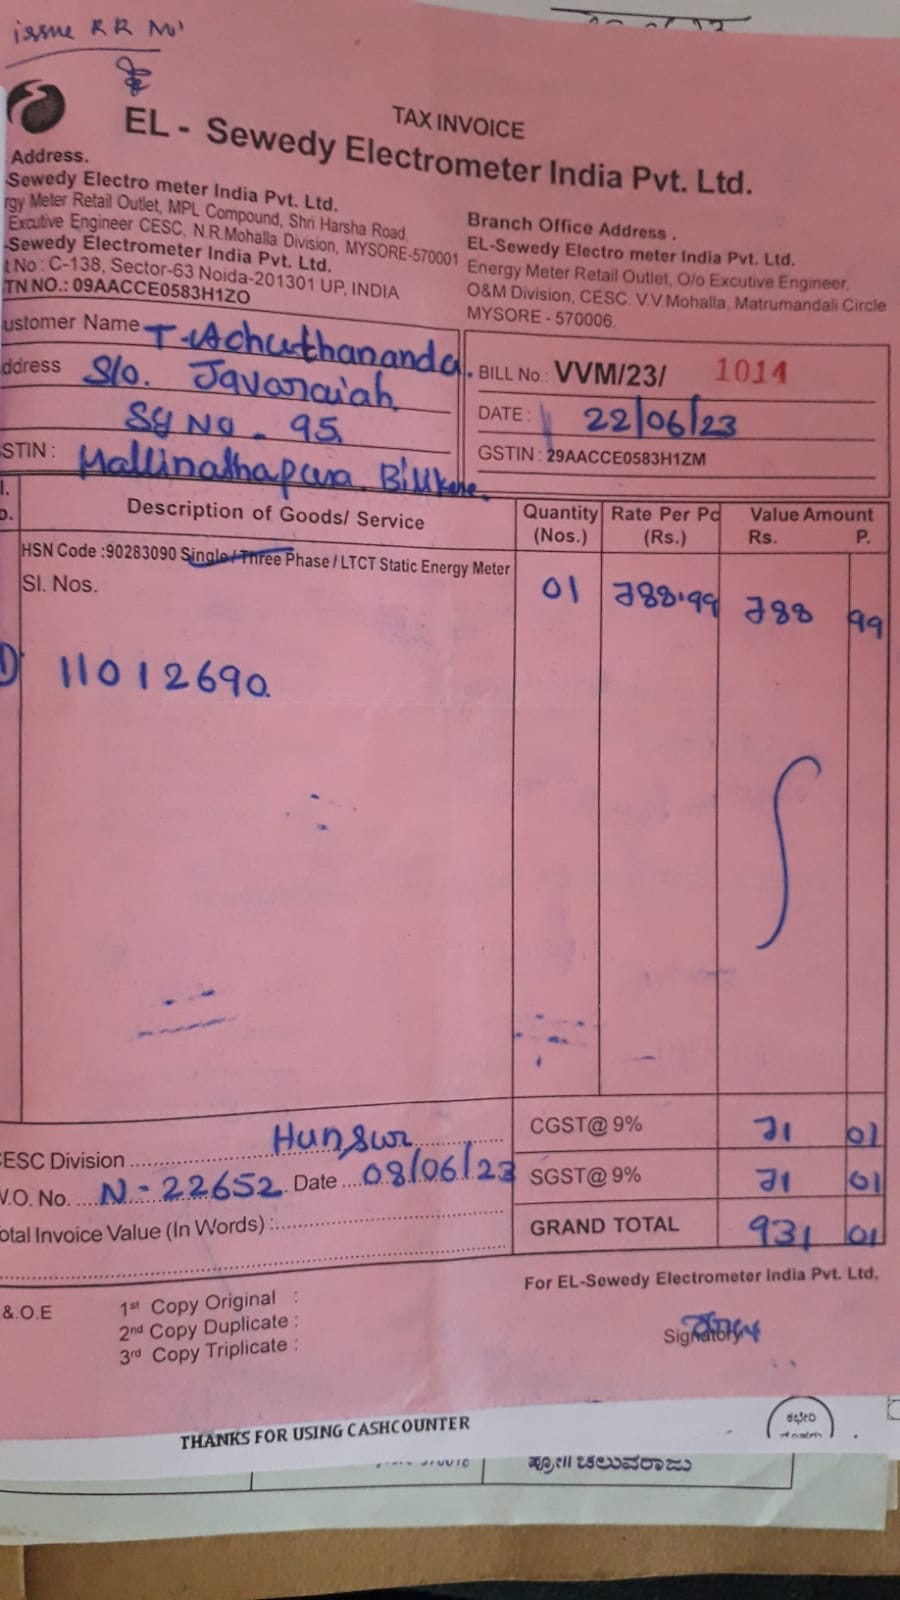 issue RR No'
TAX INVOICE
EL - Sewedy Electrometer India Pvt. Ltd.
Address.
-Sewedy Electro meter India Pvt. Ltd.
rgy Meter Retail Outlet, MPL Compound, Shri Harsha Road,
Excutive Engineer CESC, N.R.Mohalla Division, MYSORE-570001
-Sewedy Electrometer India Pvt. Ltd.
t No : C-138, Sector-63 Noida-201301 UP, INDIA
TN NO.: 09AACCE0583H1ZO
Branch Office Address .
EL-Sewedy Electro meter India Pvt. Ltd.
Energy Meter Retail Outlet, O/o Excutive Engineer,
O&M Division, CESC. V.V.Mohalla, Matrumandali Circle
MYSORE - 570006.
ustomer Name T. Achuthananda.
ddress S/o. Javaraiah
Sy No. 95
STIN : Mallinathapura. Bilikere.
BILL No.: VVM/23/ 1014
DATE : 22/06/23
GSTIN : 29AACCE0583H1ZM
l. Description of Goods/ Service Quantity Rate Per Pc Value Amount
o. (Nos.) (Rs.) Rs. P.
HSN Code :90283090 Single / Three Phase / LTCT Static Energy Meter
Sl. Nos. 01 788.99 788 99
1) 11012690.
ESC Division Hunsur CGST@ 9% 71 01
V.O. No. N-22652 Date 08/06/23 SGST@ 9% 71 01
otal Invoice Value (In Words) : GRAND TOTAL 931 01
For EL-Sewedy Electrometer India Pvt. Ltd.
&.O.E 1st Copy Original :
2nd Copy Duplicate :
3rd Copy Triplicate :
Signatory
THANKS FOR USING CASHCOUNTER
ಕಛೇರಿ
ಪ್ರೋ॥ ಚಲುವರಾಜು